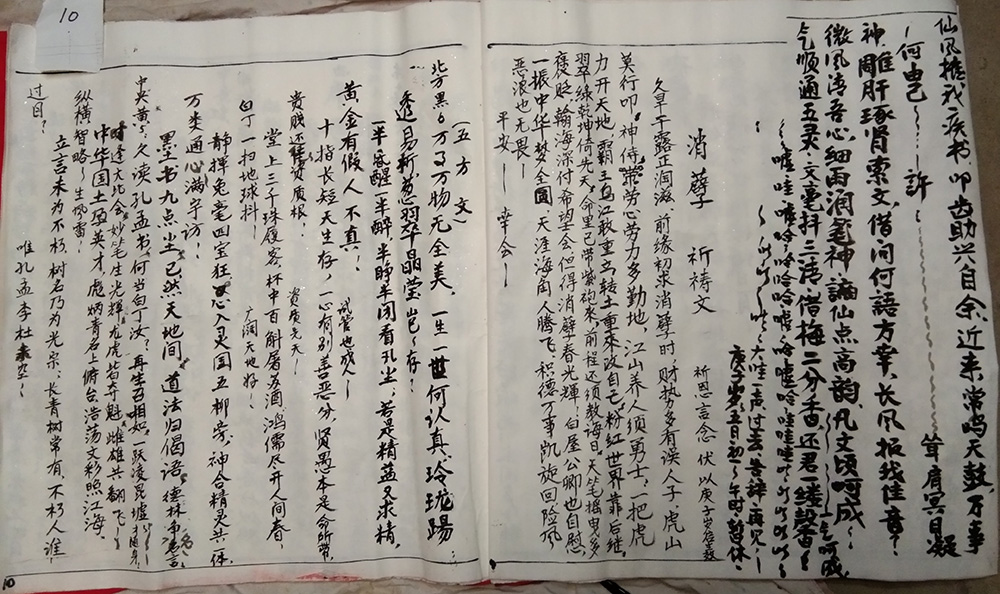 仙风搀我疾书叩齿助兴自余近来常鸣天鼓不事
何由已许
耸肩冥目凝
神雕肝琢肾索文借问何语方塞长风报线佳章
微风清吾心细雨润毫神谪仙点高韵凡文顷呵成
乞呵成
气顺通五灵文毫抖三清借梅二分香还君一缕馨
嘘哇唯哈哈哈嘘哈嘘哈哇哇
大哇一声过去告辞再见
庚子岁五月初午时暂休
消孽祈祷文
祈恩言念伏以庚子岁
久旱干露正润滋前缘初求消孽时财势多有误人子虎山
莫行叩神侍劳心劳力多勤地江山养人须勇士一把虎
力开天地霸王乌江敢重立转土重来改自己粉红世界靠后继
翠绿乾坤倚先天命里已带紫袍来前程还须教诲日天笔摇曳多
褒贬翰海深付希望会但得消孽春光辉白屋公卿也自慰
一振中华梦全圆天涯海角人腾飞积德万事凯旋回险风
恶浪也无畏
平安
幸会
(五方文)
北方黑6万3万物无全美一生一世何认真玲珑踢
透易新葱翠晶莹岂存
一半感醒一半醉半睁半闭看孔尘若是精益又求精
黄金有假人不真
试管也成人
十指长短天生存一心有别善恶分贤愚本是命所带
贵贱还凭资质根
资质先天
堂上三千珠履客杯中百斛屠落酒鸿儒尽开人间春
白丁一扫地球抖
广阔天地好
静挥兔毫四宝狂心入灵国五柳旁神合精灵共一体
万类通心满宇访
墨土书九点尘已然天地间道法归偈语德林净名言
中央黄久读孔孟书何当白丁汝再生召相如一跃凌昆墟
随身
时逢大北会妙笔生光辉龙虎若夺魁雌雄共翻飞
中华国土孕英才彪炳青名上俯台浩荡文彩照江海
纵横智略生惊雷
立言未为不朽树名乃为光宗长青树常有不朽人谁
过目
唯孔孟李杜表空
10
10